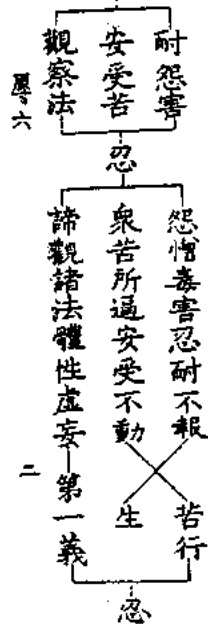 耐怨害
安受苦
觀察法
六
忍
怨憎毒害忍耐不報
衆苦所逼安受不動
諦觀諸法體性虛妄
二
苦行
生
第一義
忍